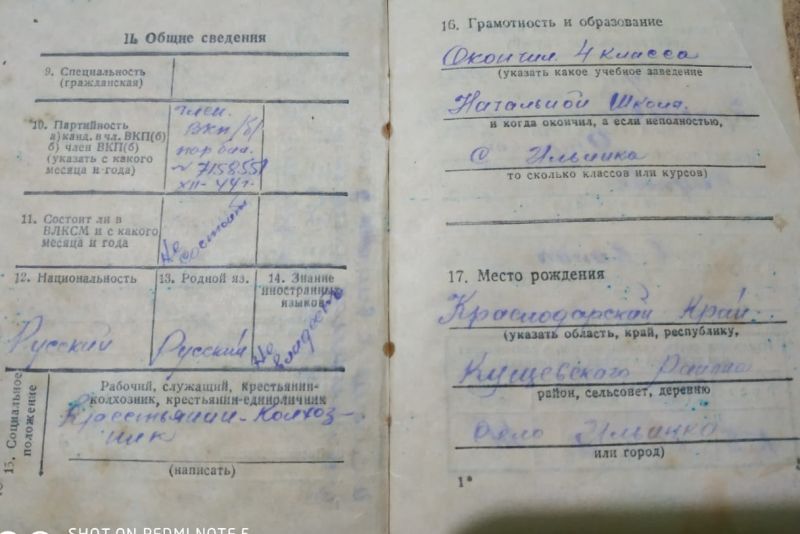 II. Общие сведения
9. Специальность
(гражданская)
10. Партийность
а) канд. в чл. ВКП(б)
б) член ВКП(б)
(указать с какого
месяца и года)
член.
ВКП/б/
парбил.
№ 7158551
XII-44 г.
11. Состоит ли в
ВЛКСМ и с какого
месяца и года
Не состоит
12. Национальность
Русский
13. Родной яз.
Русский
14. Знание
иностранных
языков
Не
15. Социальное
положение
Рабочий, служащий, крестьянин-
колхозник, крестьянин-единоличник
Крестьянин-Колхоз-
ник
(написать)
16. Грамотность и образование
Окончил 4 класса
(указать какое учебное заведение
Начальной Школа
и когда окончил, а если неполностью,
С Ильинка
то сколько классов или курсов)
17. Место рождения
Краснодарский Край
(указать область, край, республику,
Кущевского Района
район, сельсовет, деревню
Село Ильинка
или город)
1*
SHOT ON REDMI NOTE 5